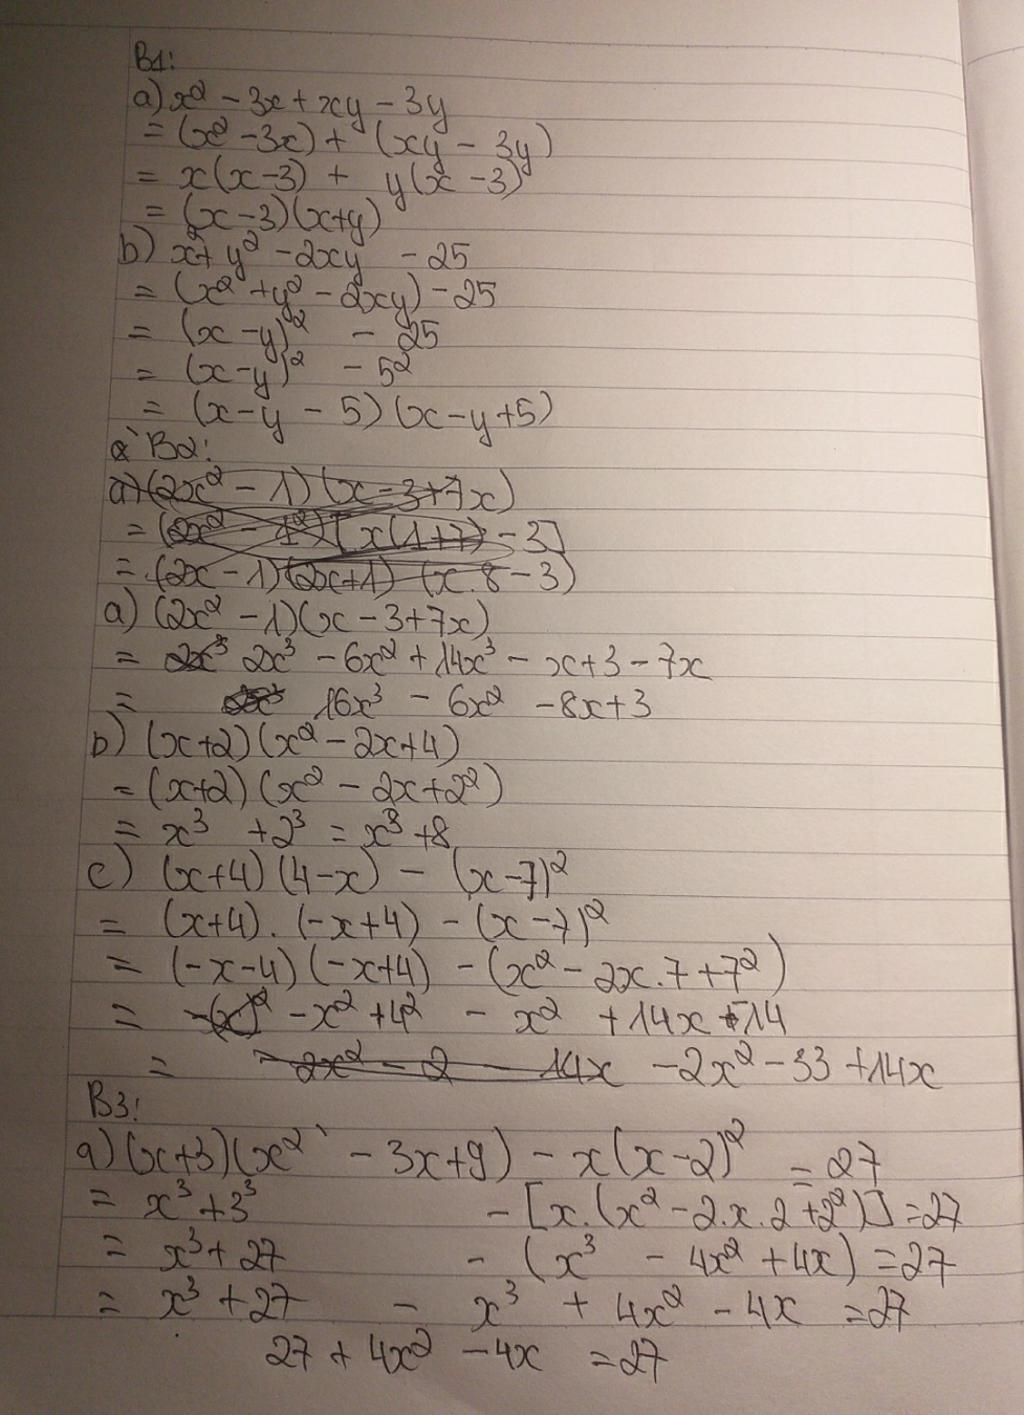 B1:
a) x² - 3x + xy - 3y
= (x² - 3x) + (xy - 3y)
= x(x - 3) + y(x - 3)
= (x - 3)(x + y)
b) x² + y² - 2xy - 25
= (x² + y² - 2xy) - 25
= (x - y)² - 25
= (x - y)² - 5²
= (x - y - 5)(x - y + 5)
B2:
a) (2x² - 1)(x - 3 + 7x)
= (2x² - 1²)[x(1 + 7) - 3]
= (2x - 1)(2x + 1) (x.8 - 3)
a) (2x² - 1)(x - 3 + 7x)
= 2x³ 2x³ - 6x² + 14x³ - x + 3 - 7x
= 16x³ - 6x² - 8x + 3
b) (x + 2)(x² - 2x + 4)
= (x + 2)(x² - 2x + 2²)
= x³ + 2³ = x³ + 8
c) (x + 4)(4 - x) - (x - 7)²
= (x + 4).(-x + 4) - (x - 7)²
= (-x - 4)(-x + 4) - (x² - 2x.7 + 7²)
= -(x)² - x² + 4² - x² + 14x - 14
= - 2x² - 2 - 14x - 2x² - 33 + 14x
B3:
a) (x + 3)(x² - 3x + 9) - x(x - 2)² = 27
= x³ + 3³ - [x.(x² - 2.x.2 + 2²)] = 27
= x³ + 27 - (x³ - 4x² + 4x) = 27
= x³ + 27 - x³ + 4x² - 4x = 27
27 + 4x² - 4x = 27